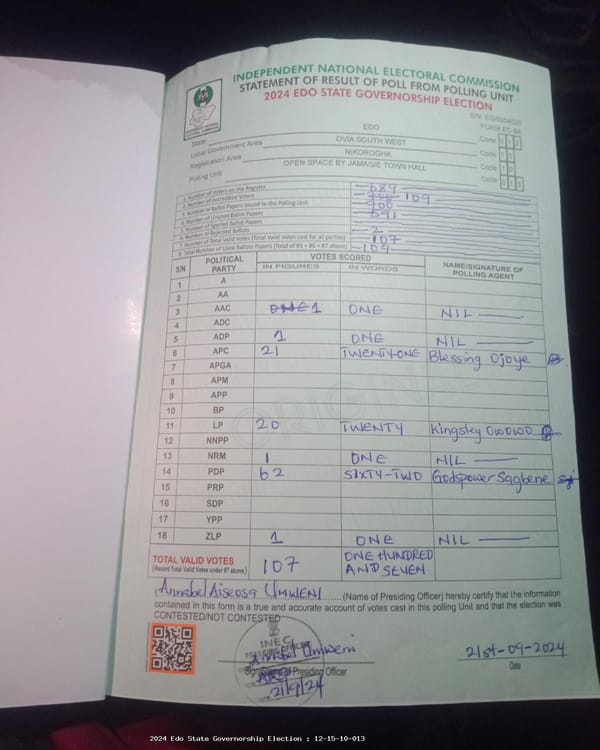 INDEPENDENT NATIONAL ELECTORAL COMMISSION
STATEMENT OF RESULT OF POLL FROM POLLING UNIT
2024 EDO STATE GOVERNORSHIP ELECTION
FORM EC 8A
State EDO Code 012
Local Government Area OVIA SOUTH WEST Code
Registration Area NIKOROGHA Code 10
Polling Unit OPEN SPACE BY JAMAGIE TOWN HALL Code 013
1. Number of Voters on the Register 689
2. Number of Accredited Voters 109
3. Number of Ballot Papers Issued to the Polling Unit 700
4. Number of Unused Ballot Papers 591
5. Number of Spoiled Ballot Papers
6. Number of Rejected Ballots 2
7. Number of Total Valid Votes (Total Valid Votes cast for all parties) 107
8. Total Number of Used Ballots Papers (Total of #5 + #6 + #7 above) 109
S/N POLITICAL PARTY VOTES SCORED NAME/SIGNATURE OF POLLING AGENT
IN FIGURES IN WORDS
1 A
2 AA
3 AAC 1 ONE NIL
4 ADC
5 ADP 1 ONE NIL
6 APC 21 TWENTY-ONE Blessing Ojoye
7 APGA
8 APM
9 APP
10 BP
11 LP 20 TWENTY Kingsley Owowo
12 NNPP
13 NRM 1 ONE NIL
14 PDP 62 SIXTY-TWO Godspower Sagbene
15 PRP
16 SDP
17 YPP
18 ZLP 1 ONE NIL
TOTAL VALID VOTES 107 ONE HUNDRED
(Record Total Valid Votes under #7 above) AND SEVEN
I Annabel Aiseosa UMWENI (Name of Presiding Officer) hereby certify that the information
contained in this form is a true and accurate account of votes cast in this polling Unit and that the election was
CONTESTED/NOT CONTESTED
INEC
Annabel Umweni 21st-09-2024
Signature of Presiding Officer Date
21/9/24
2024 Edo State Governorship Election : 12-15-10-013